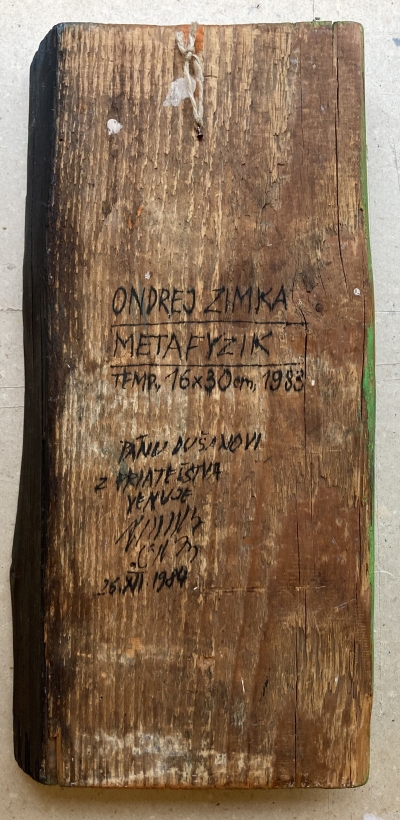 ONDREJ ZIMKA
METAFYZIK
TEMP, 16x30cm, 1983
DUŠANOVI
Z PRIATEĽSTVA
VENUJE
26.XII 1984